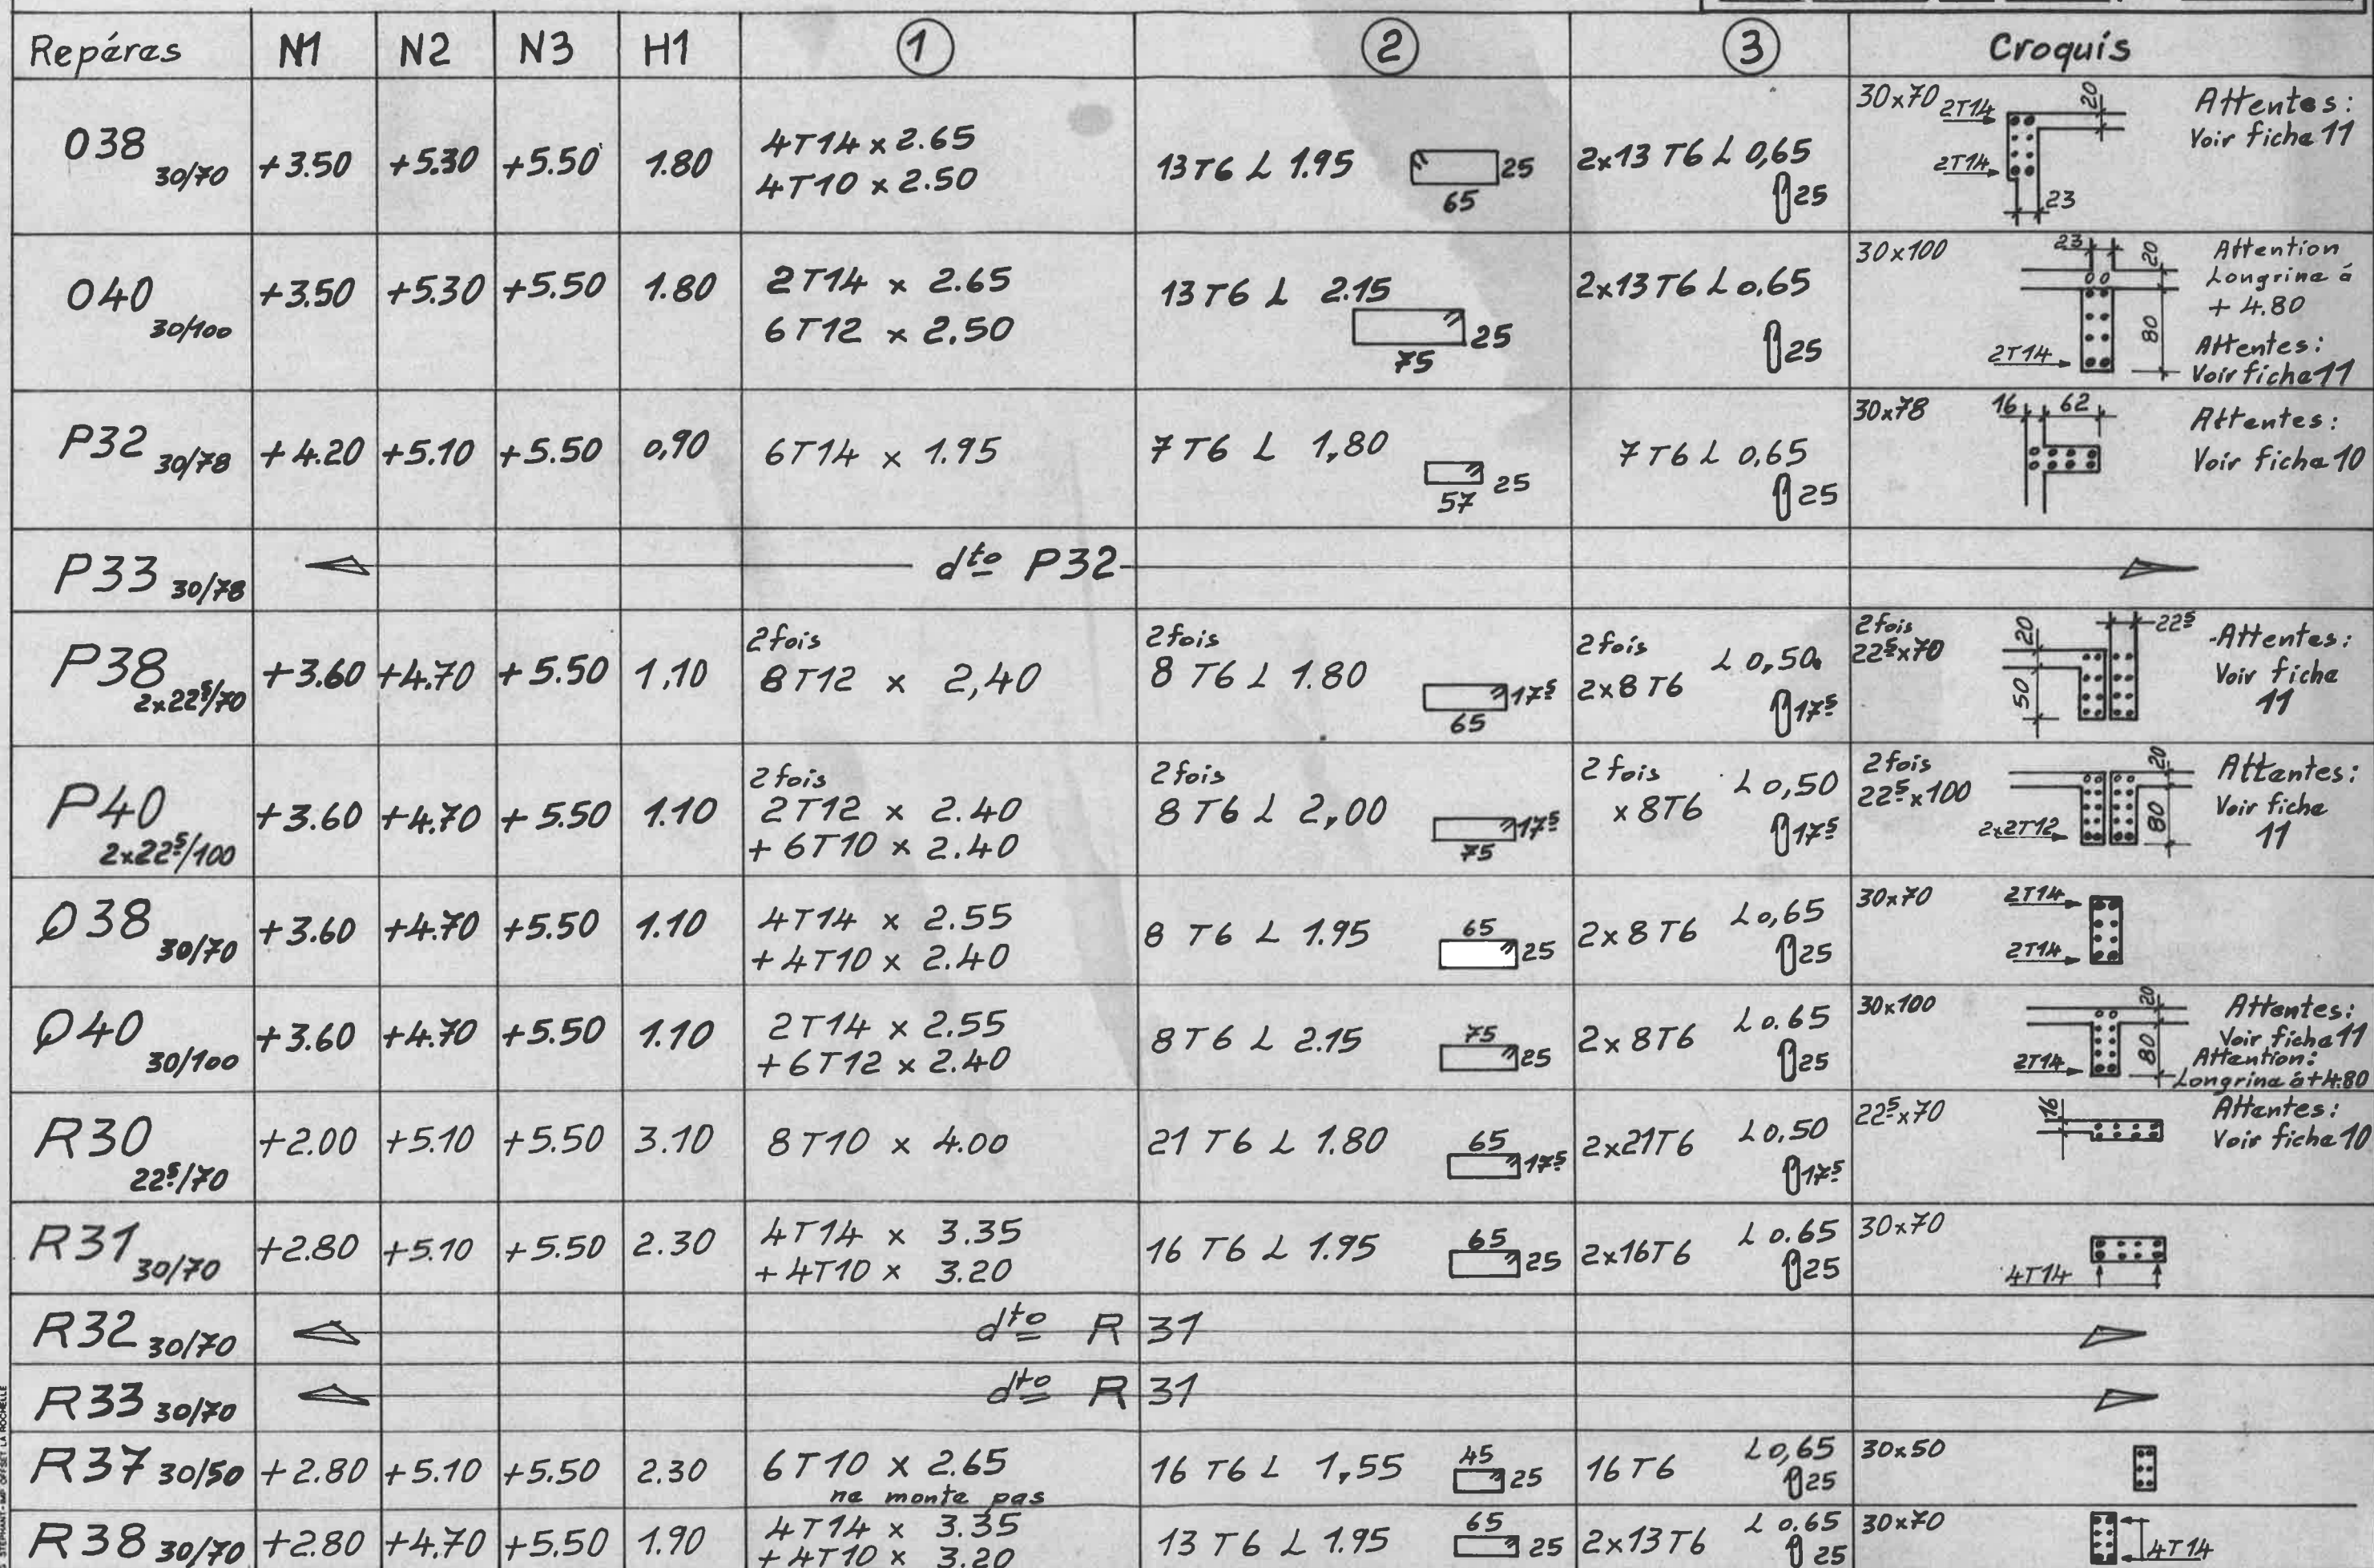 Repéres N1 N2 N3 H1 1 2 3 Croquis
O38 30/70 +3.50 +5.30 +5.50 1.80
4T14 x 2.65
4T10 x 2.50
13T6 L 1.95 25
65
2x13 T6 L 0,65
25
30x70 2T14 20
2T14
23
Attentes:
Voir fiche 11
O40 30/100 +3.50 +5.30 +5.50 1.80
2T14 x 2.65
6T12 x 2.50
13T6 L 2.15
25
75
2x13T6 L 0.65
25
30x100 23 20
80
2T14
Attention
Longrine à
+ 4.80
Attentes:
Voir fiche 11
P32 30/78 +4.20 +5.10 +5.50 0,90
6T14 x 1.95
7 T6 L 1,80
25
57
7 T6 L 0,65
25
30x78 16 62
Attentes:
Voir fiche 10
P33 30/78 dto P32
P38 2x22⁵/70 +3.60 +4.70 +5.50 1,10
2 fois
8T12 x 2,40
2 fois
8 T6 L 1.80
17⁵
65
2 fois L 0,50
2x8 T6
17⁵
2 fois
22⁵x70
20
50
22⁵
-Attentes:
Voir fiche
11
P40 2x22⁵/100 +3.60 +4.70 +5.50 1.10
2 fois
2T12 x 2.40
+ 6T10 x 2.40
2 fois
8 T6 L 2,00
17⁵
75
2 fois L 0,50
x 8T6
17⁵
2 fois
22⁵x100
20
80
2x2T12
Attentes:
Voir fiche
11
Q38 30/70 +3.60 +4.70 +5.50 1.10
4T14 x 2.55
+ 4T10 x 2.40
8 T6 L 1.95
65
25
2x8T6 L 0,65
25
30x70 2T14
2T14
Q40 30/100 +3.60 +4.70 +5.50 1.10
2T14 x 2.55
+ 6T12 x 2.40
8T6 L 2.15
75
25
2x8T6 L 0.65
25
30x100 20
80
2T14
Attentes:
Voir fiche 11
Attention:
Longrine à +4.80
R30 22⁵/70 +2.00 +5.10 +5.50 3.10
8T10 x 4.00
21 T6 L 1.80
65
17⁵
2x21T6 L 0,50
17⁵
22⁵x70 16
Attentes:
Voir fiche 10
R31 30/70 +2.80 +5.10 +5.50 2.30
4T14 x 3.35
+ 4T10 x 3.20
16 T6 L 1.95
65
25
2x16T6 L 0.65
25
30x70
4T14
R32 30/70 dto R 31
R33 30/70 dto R 31
R37 30/50 +2.80 +5.10 +5.50 2.30
6T10 x 2.65
ne monte pas
16 T6 L 1,55
45
25
16 T6 L 0,65
25
30x50
R38 30/70 +2.80 +4.70 +5.50 1.90
4T14 x 3.35
+ 4T10 x 3.20
13 T6 L 1.95
65
25
2x13T6 L 0.65
25
30x70
4T14
OFFSET LA ROCHELLE